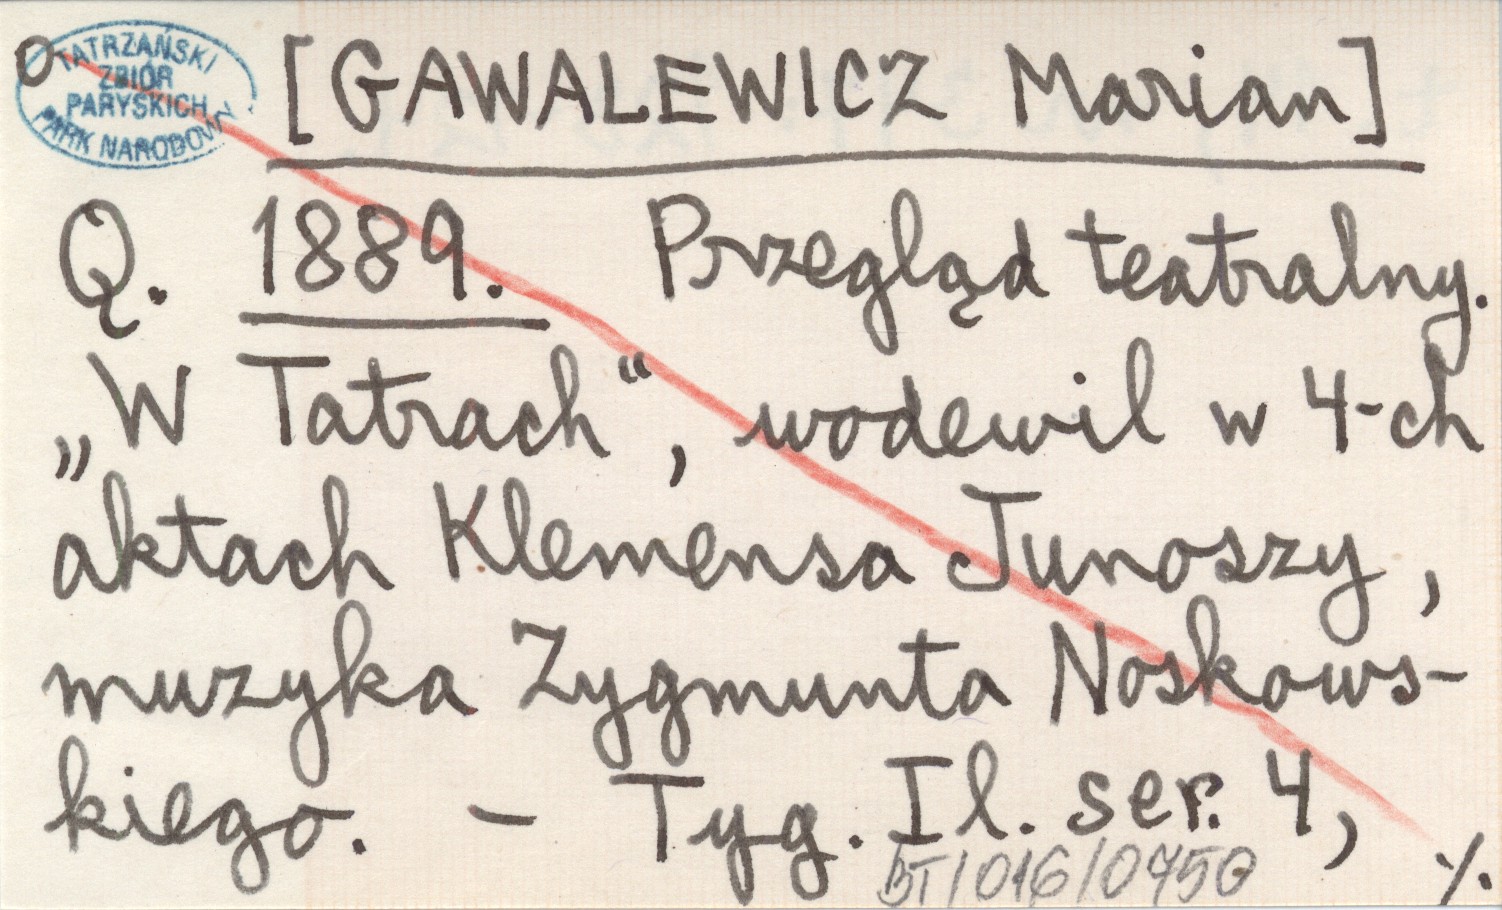 TATRZAŃSKI
ZBIÓR
PARYSKICH
PARK NARODOWY
[GAWALEWICZ Marian]
Q. 1889. Przegląd teatralny.
„W Tatrach“, wodewil w 4-ch
aktach Klemensa Junoszy,
muzyka Zygmunta Noskows-
kiego. – Tyg. Il. ser. 4,
BT/016/0450 ·/.